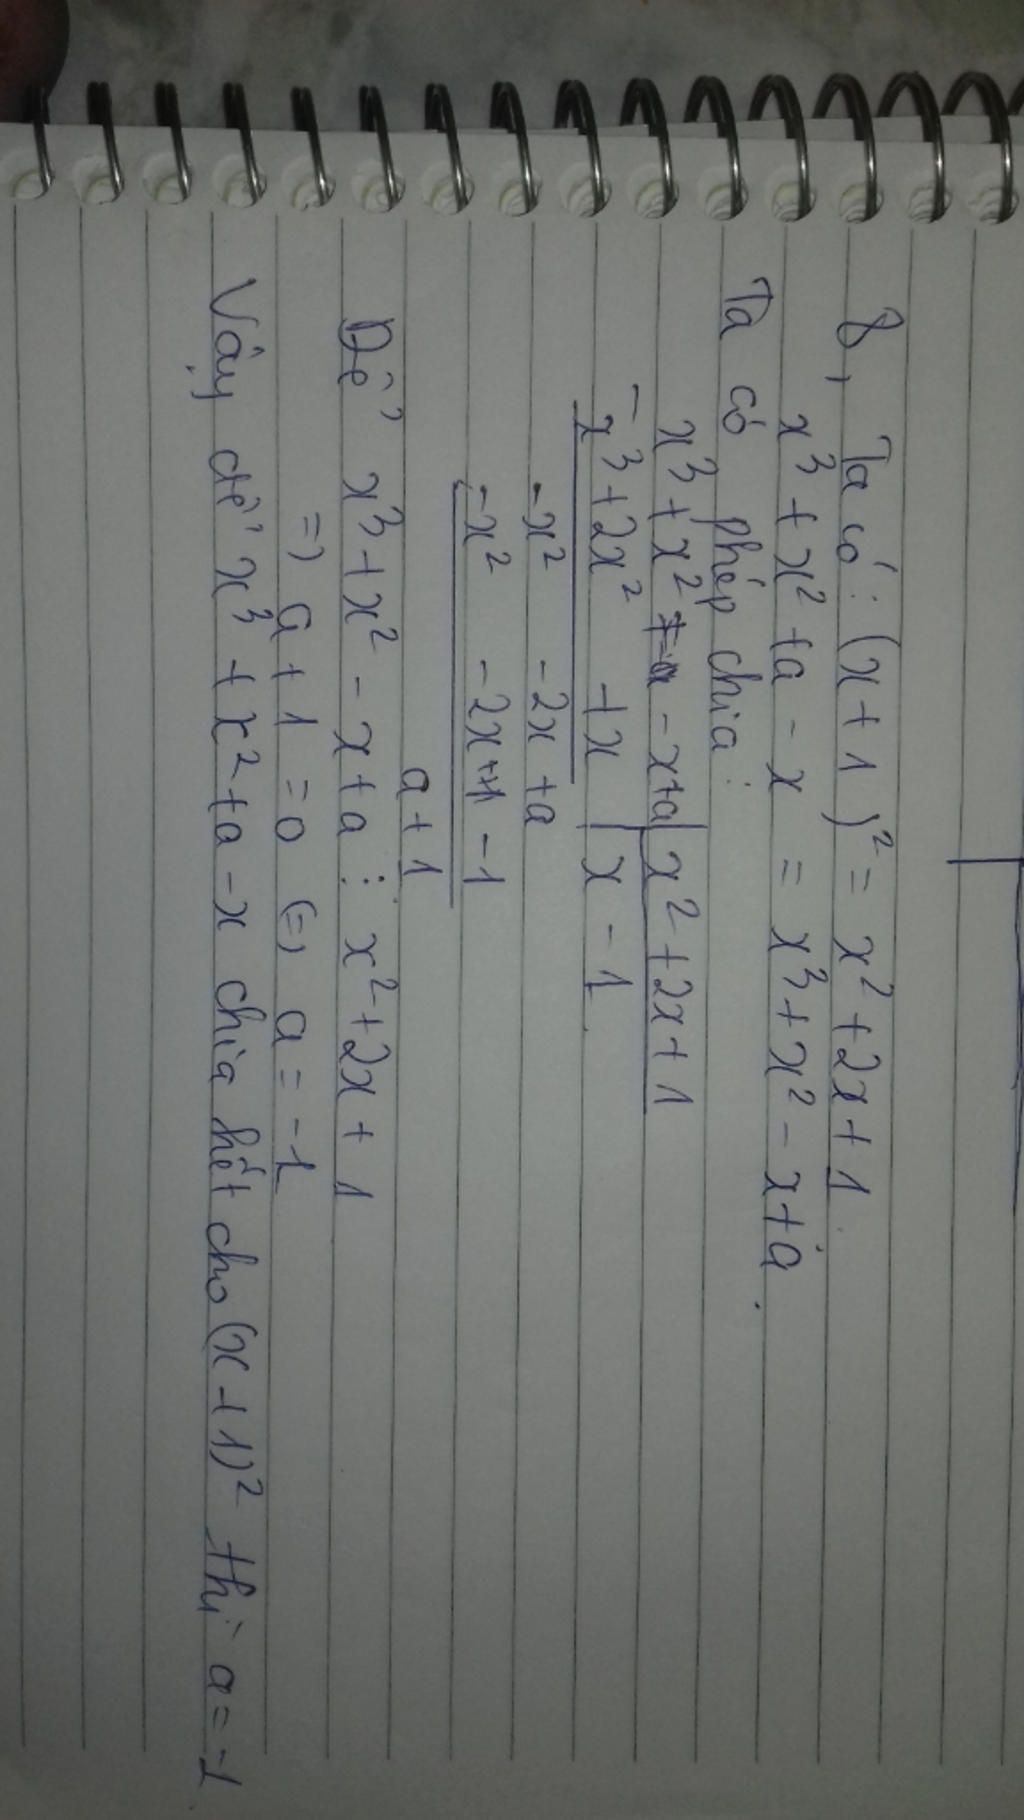 8, Ta có: (x+1)² = x²+2x+1
x³+x²+a-x = x³+x²-x+a
Ta có phép chia:
x³+x² -x+a | x²+2x+1
- x³+2x² +x | x-1
-x² -2x+a
-x² -2x -1
a+1
Để x³+x²-x+a ⋮ x²+2x+1
=) a+1=0 (=) a=-1
Vậy để x³+x²+a-x chia hết cho (x+1)² thì a=-1